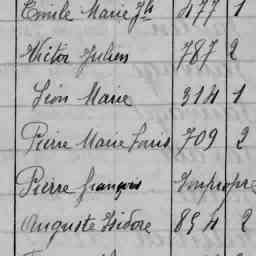 Emile Marie Jh 477 1
Victor Julien 787 2
Léon Marie 314 1
Pierre Marie Louis 709 2
Pierre françois Impropre
Auguste Isidore 854 2